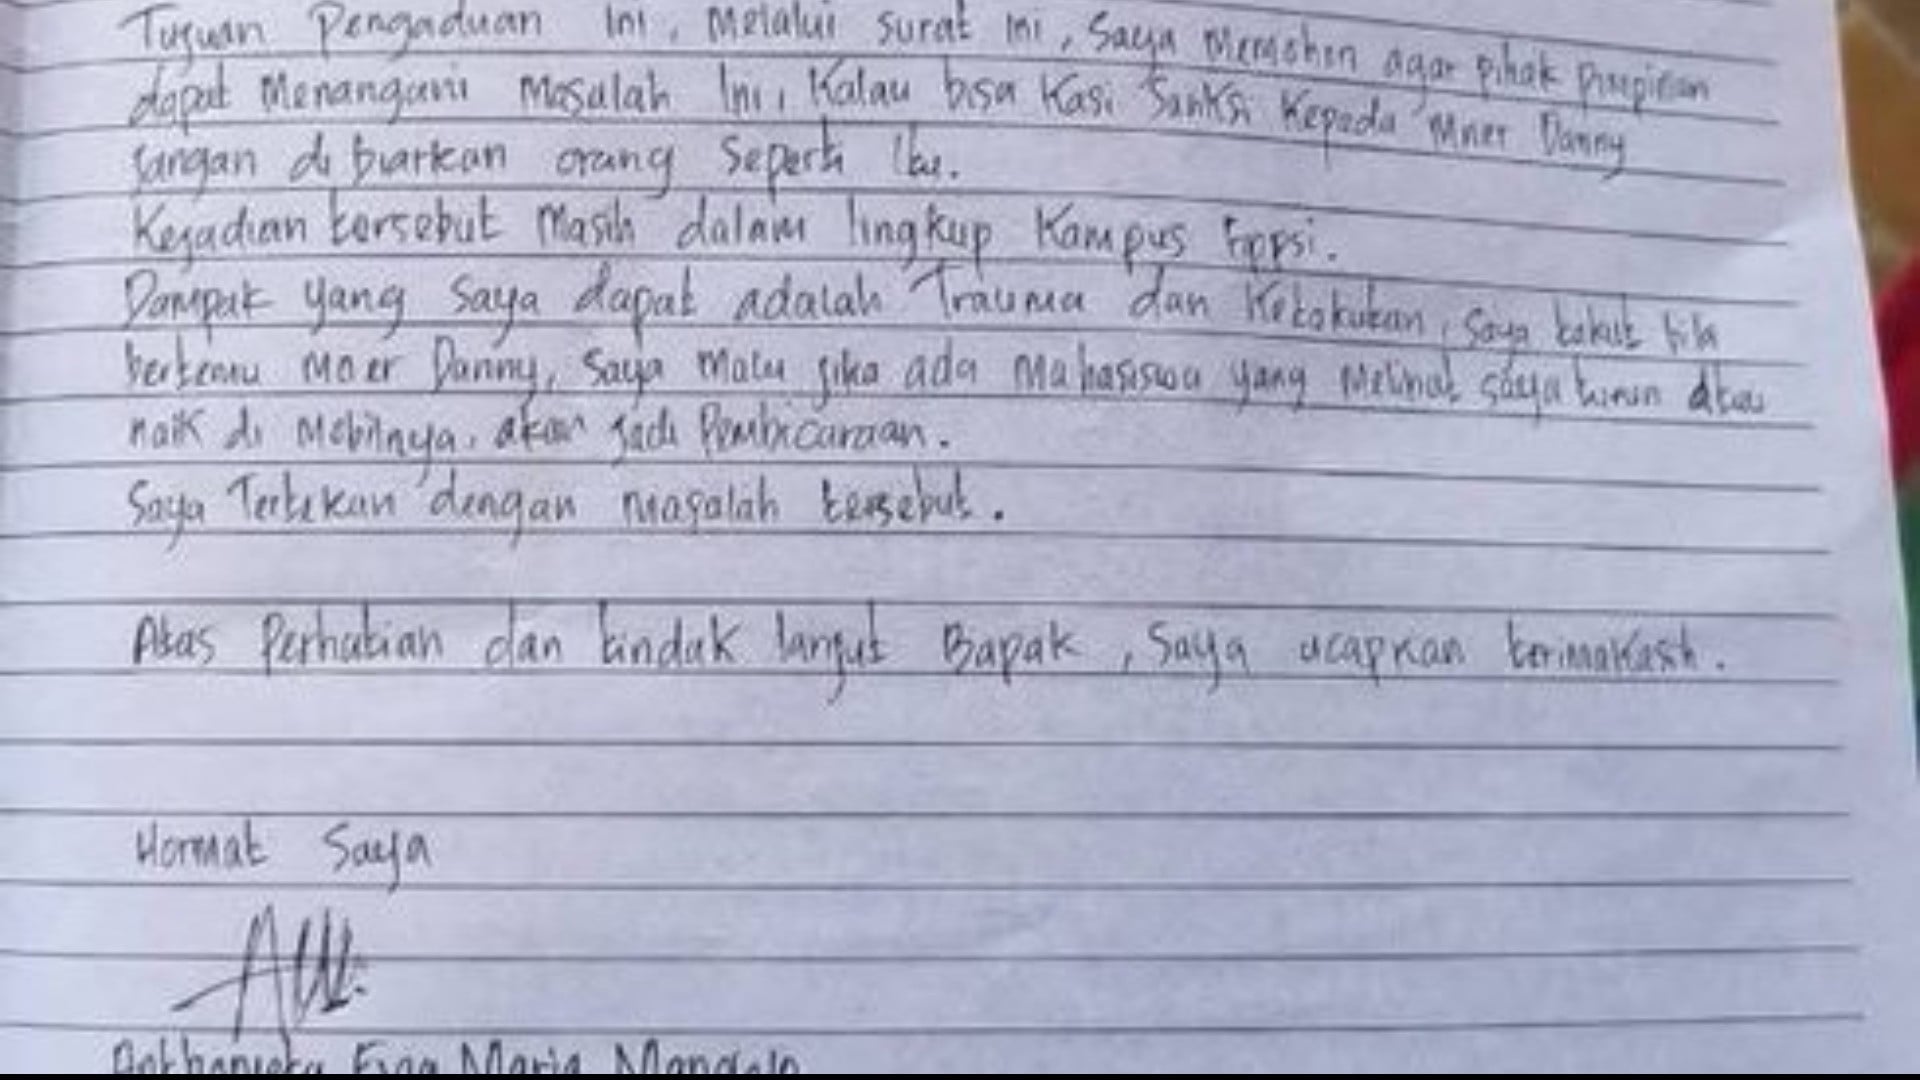 Tujuan Pengaduan ini, Melalui surat ini, Saya Memohon agar pihak Pimpinan
dapat Menangani Masalah Ini, Kalau bisa Kasi Sanksi Kepada Mner Danny
jangan di biarkan orang Seperti Itu.
Kejadian tersebut Masih dalam lingkup Kampus Fippsi.
Dampak yang Saya dapat adalah Trauma dan Ketakutan, Saya takut bila
bertemu Mner Danny, Saya Malu jika ada Mahasiswa yang Melihat saya turun atau
naik di Mobilnya, akan jadi Pembicaraan.
Saya Tertekan dengan masalah tersebut.
Atas Perhatian dan tindak lanjut Bapak, Saya ucapkan terimakasih.
Hormat Saya
Maria